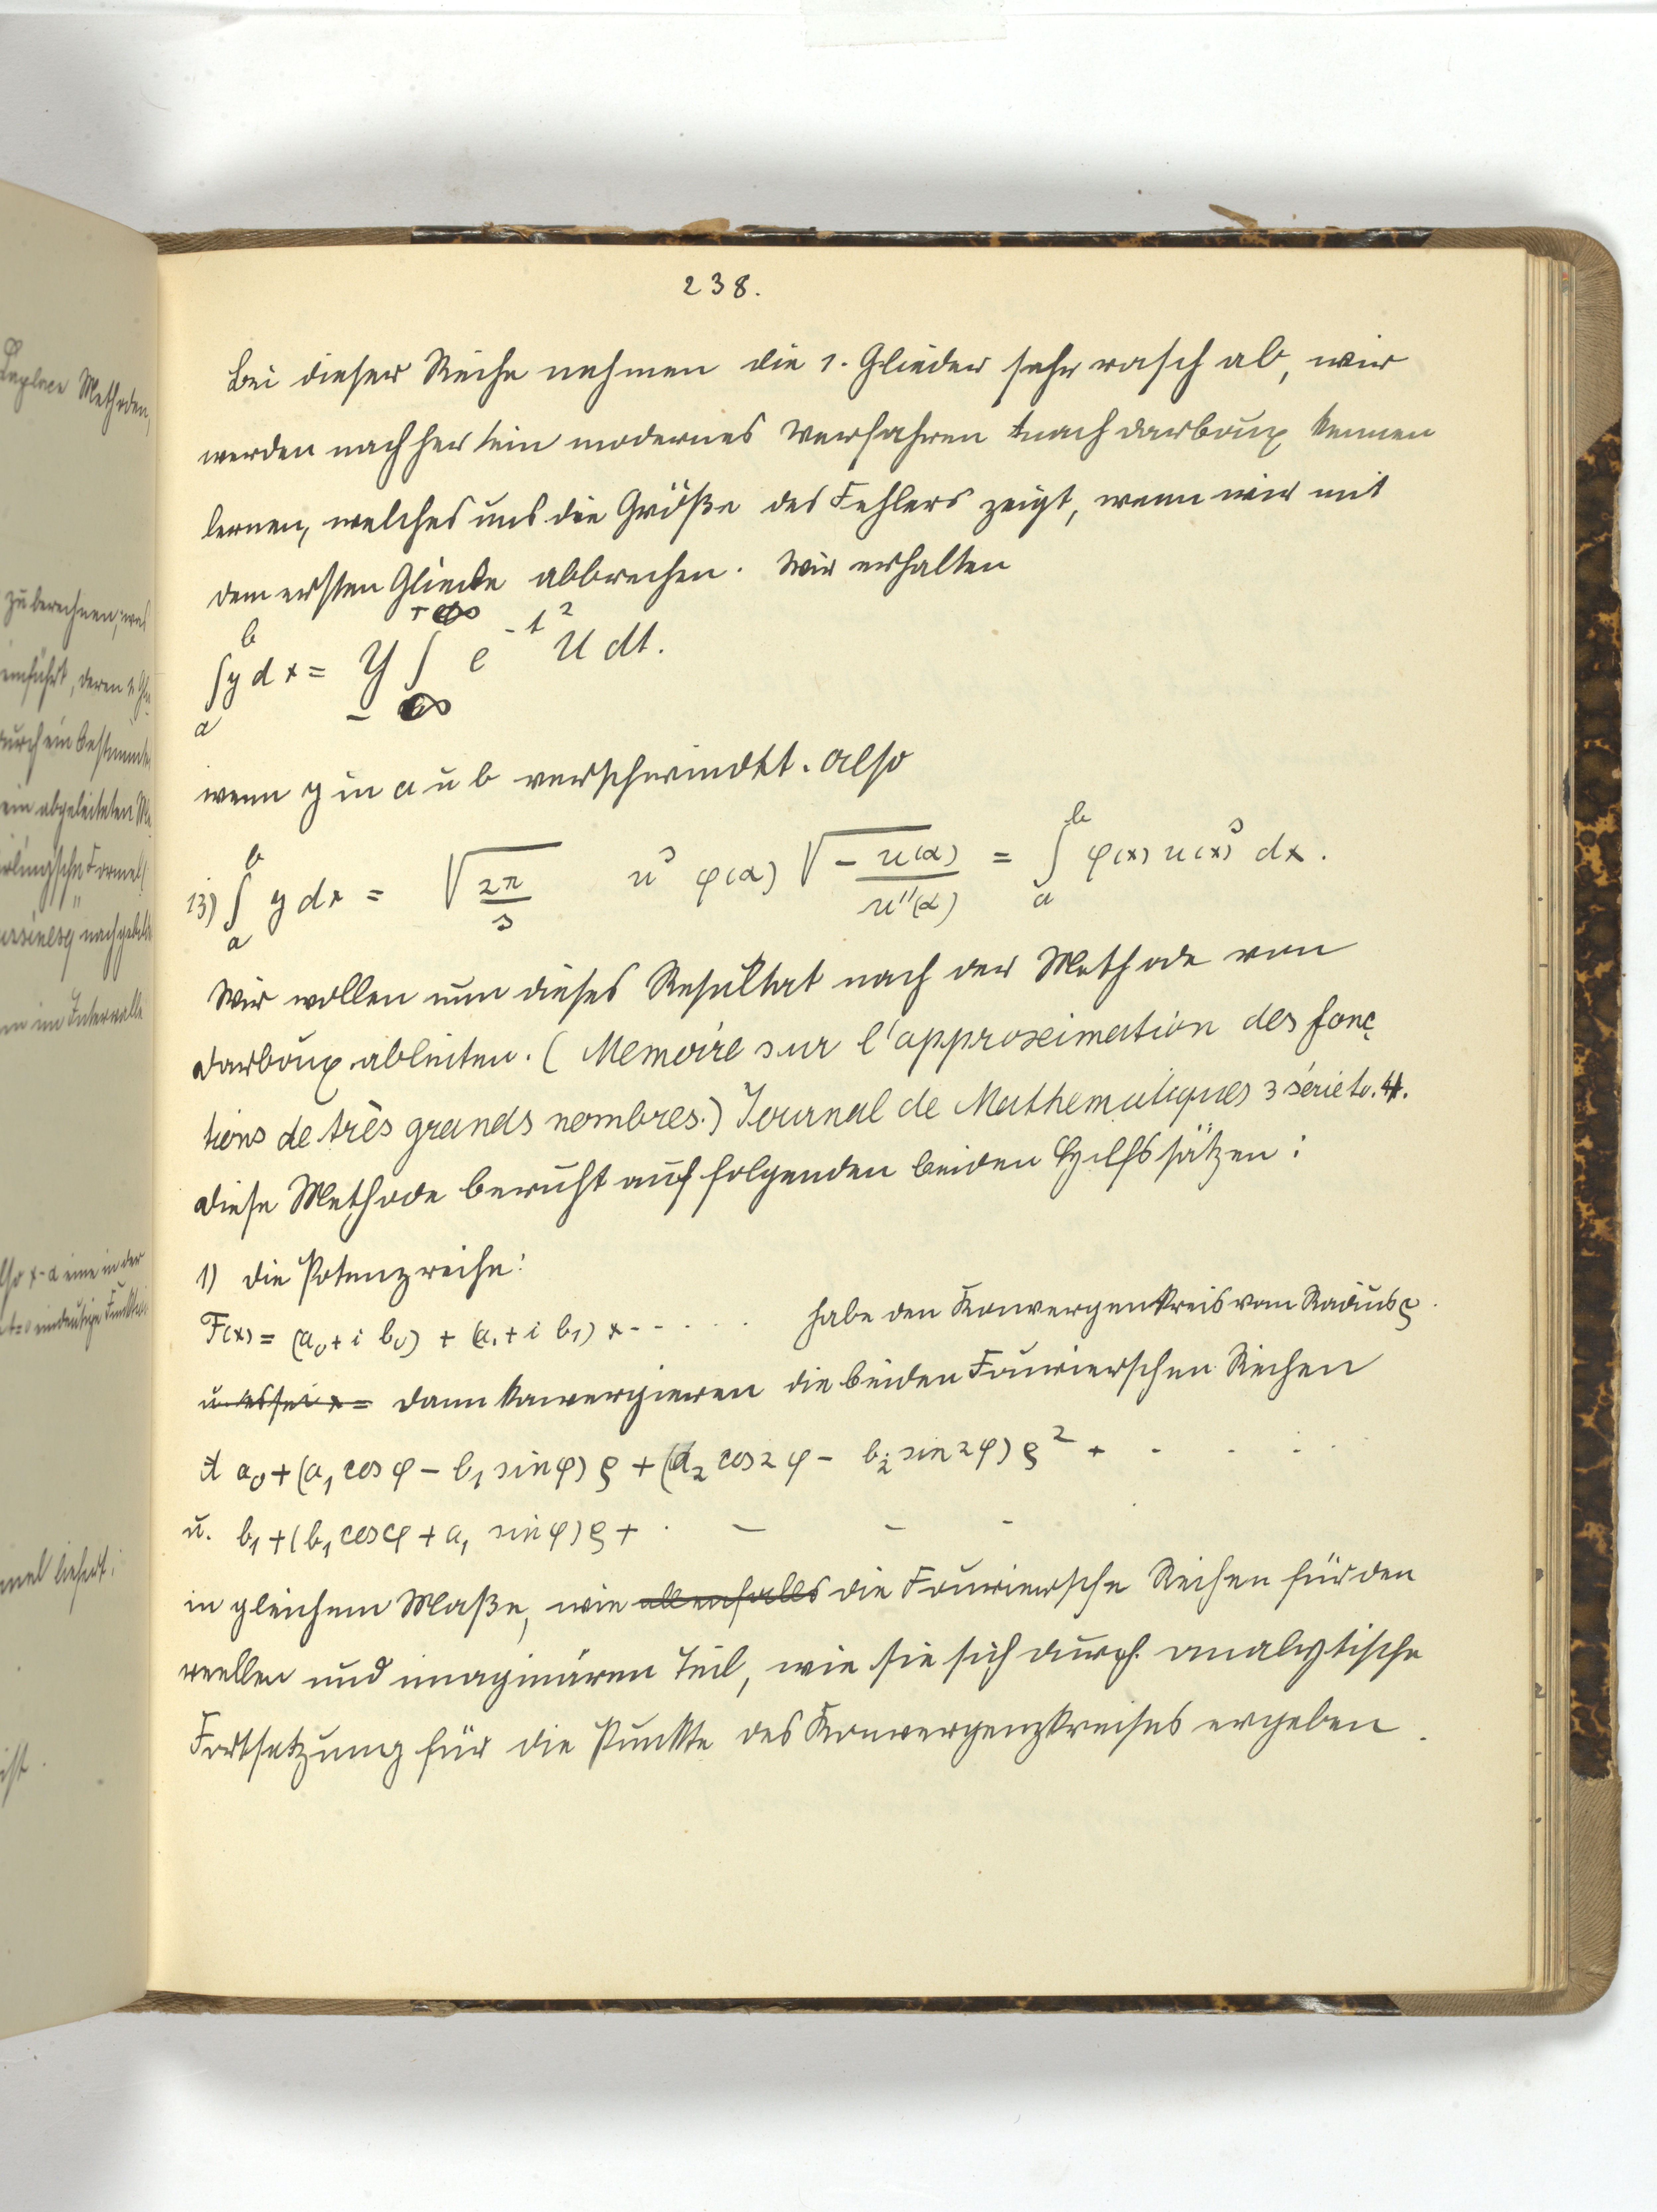 238.
Bei dieser Reihe nehmen die 1. Glieder sehr rasch ab, wir
werden nachher ein modernes Verfahren nach Darboux kennen
lernen, welches uns die Größe des Fehlers zeigt, wenn wir mit
dem ersten Gliede abbrechen. Wir erhalten
∫_a^b y dx = Y ∫_{-∞}^{+∞} e^{-t²} U dt.
wenn y in a u b verschwindet. Also
13) ∫_a^b y dx = √(2π/s) u^s φ(α) √(-u(α)/u''(α)) = ∫_a^b φ(x) u(x)^s dx.
Wir wollen nun dieses Resultat nach der Methode von
Darboux ableiten. (Memoire sur l'approximation des fonc
tions de très grands nombres.) Journal de Mathematiques 3 série to. 4.
Diese Methode beruht auf folgenden beiden Hilfssätzen:
1) Die Potenzreihe:
F(x) = (a₀ + i b₀) + (a₁ + i b₁) x - - . . . . habe den Konvergenkreis vom Radius ϱ.
u. es sei x = dann konvergieren die beiden Fourierschen Reihen
a₀ + (a₁ cos φ - b₁ sin φ) ϱ + (a₂ cos 2φ - b₂ sin 2φ) ϱ² + . . . .
u. b₁ + (b₁ cos φ + a₁ sin φ) ϱ + . - - -
in gleichem Maße, wie allenfalls die Fouriersche Reihen für den
reellen und imaginären Teil, wie sie sich durch analytische
Fortsetzung für die Punkte des Konvergenzkreises ergeben.
Laplace Methoden,
zu berechnen, was
einführt, deren 1. Gli
durch ein bestimmtes
nachgebildet
im Intervalle
also x-α eine in der
eindeutige Funktion
liefert;
ist.